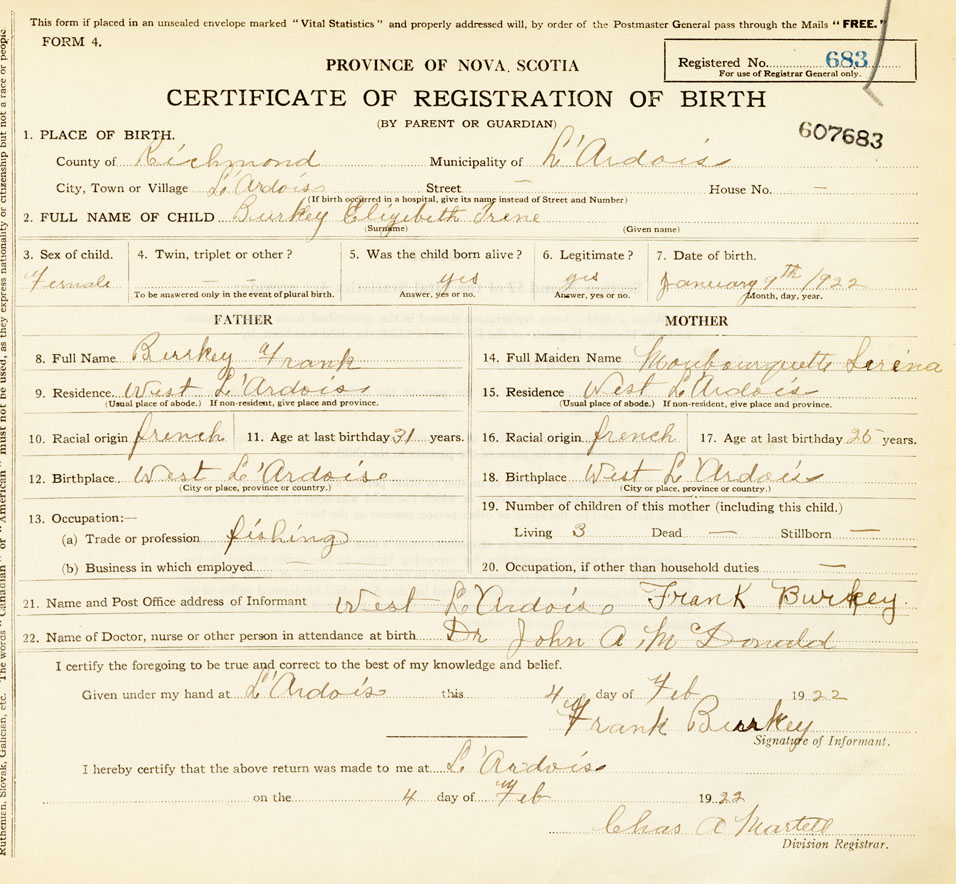 This form if placed in an unsealed envelope marked "Vital Statistics" and properly addressed will, by order of the Postmaster General pass through the Mails "FREE."
FORM 4.
Registered No. 683
For use of Registrar General only.
PROVINCE OF NOVA SCOTIA
CERTIFICATE OF REGISTRATION OF BIRTH
(BY PARENT OR GUARDIAN)
607683
1. PLACE OF BIRTH.
County of Richmond Municipality of L'Ardois
City, Town or Village L'Ardois Street — House No. —
(If birth occurred in a hospital, give its name instead of Street and Number)
2. FULL NAME OF CHILD Burkey Elizebeth Irene
(Surname) (Given name)
3. Sex of child. 4. Twin, triplet or other? 5. Was the child born alive? 6. Legitimate? 7. Date of birth.
Female — yes yes January 9th 1922
To be answered only in the event of plural birth. Answer, yes or no. Answer, yes or no. Month, day, year.
FATHER MOTHER
8. Full Name Burkey Frank 14. Full Maiden Name Moubourquette Serina
9. Residence West L'Ardois 15. Residence West L'Ardois
(Usual place of abode.) If non-resident, give place and province. (Usual place of abode.) If non-resident, give place and province.
10. Racial origin french 11. Age at last birthday 31 years. 16. Racial origin french 17. Age at last birthday 25 years.
12. Birthplace West L'Ardoise 18. Birthplace West L'Ardois
(City or place, province or country.) (City or place, province or country.)
13. Occupation:— 19. Number of children of this mother (including this child.)
(a) Trade or profession fishing Living 3 Dead — Stillborn —
(b) Business in which employed — 20. Occupation, if other than household duties —
21. Name and Post Office address of Informant West L'Ardois Frank Burkey.
22. Name of Doctor, nurse or other person in attendance at birth Dr John A McDonald
I certify the foregoing to be true and correct to the best of my knowledge and belief.
Given under my hand at L'Ardois this 4 day of Feb 1922
Frank Burkey
Signature of Informant.
I hereby certify that the above return was made to me at L'Ardois
on the 4 day of Feb 1922
Chas A Martell
Division Registrar.
Ruthenian, Slovak, Galician, etc. The words "Canadian" or "American" must not be used, as they express nationality or citizenship but not a race or people.